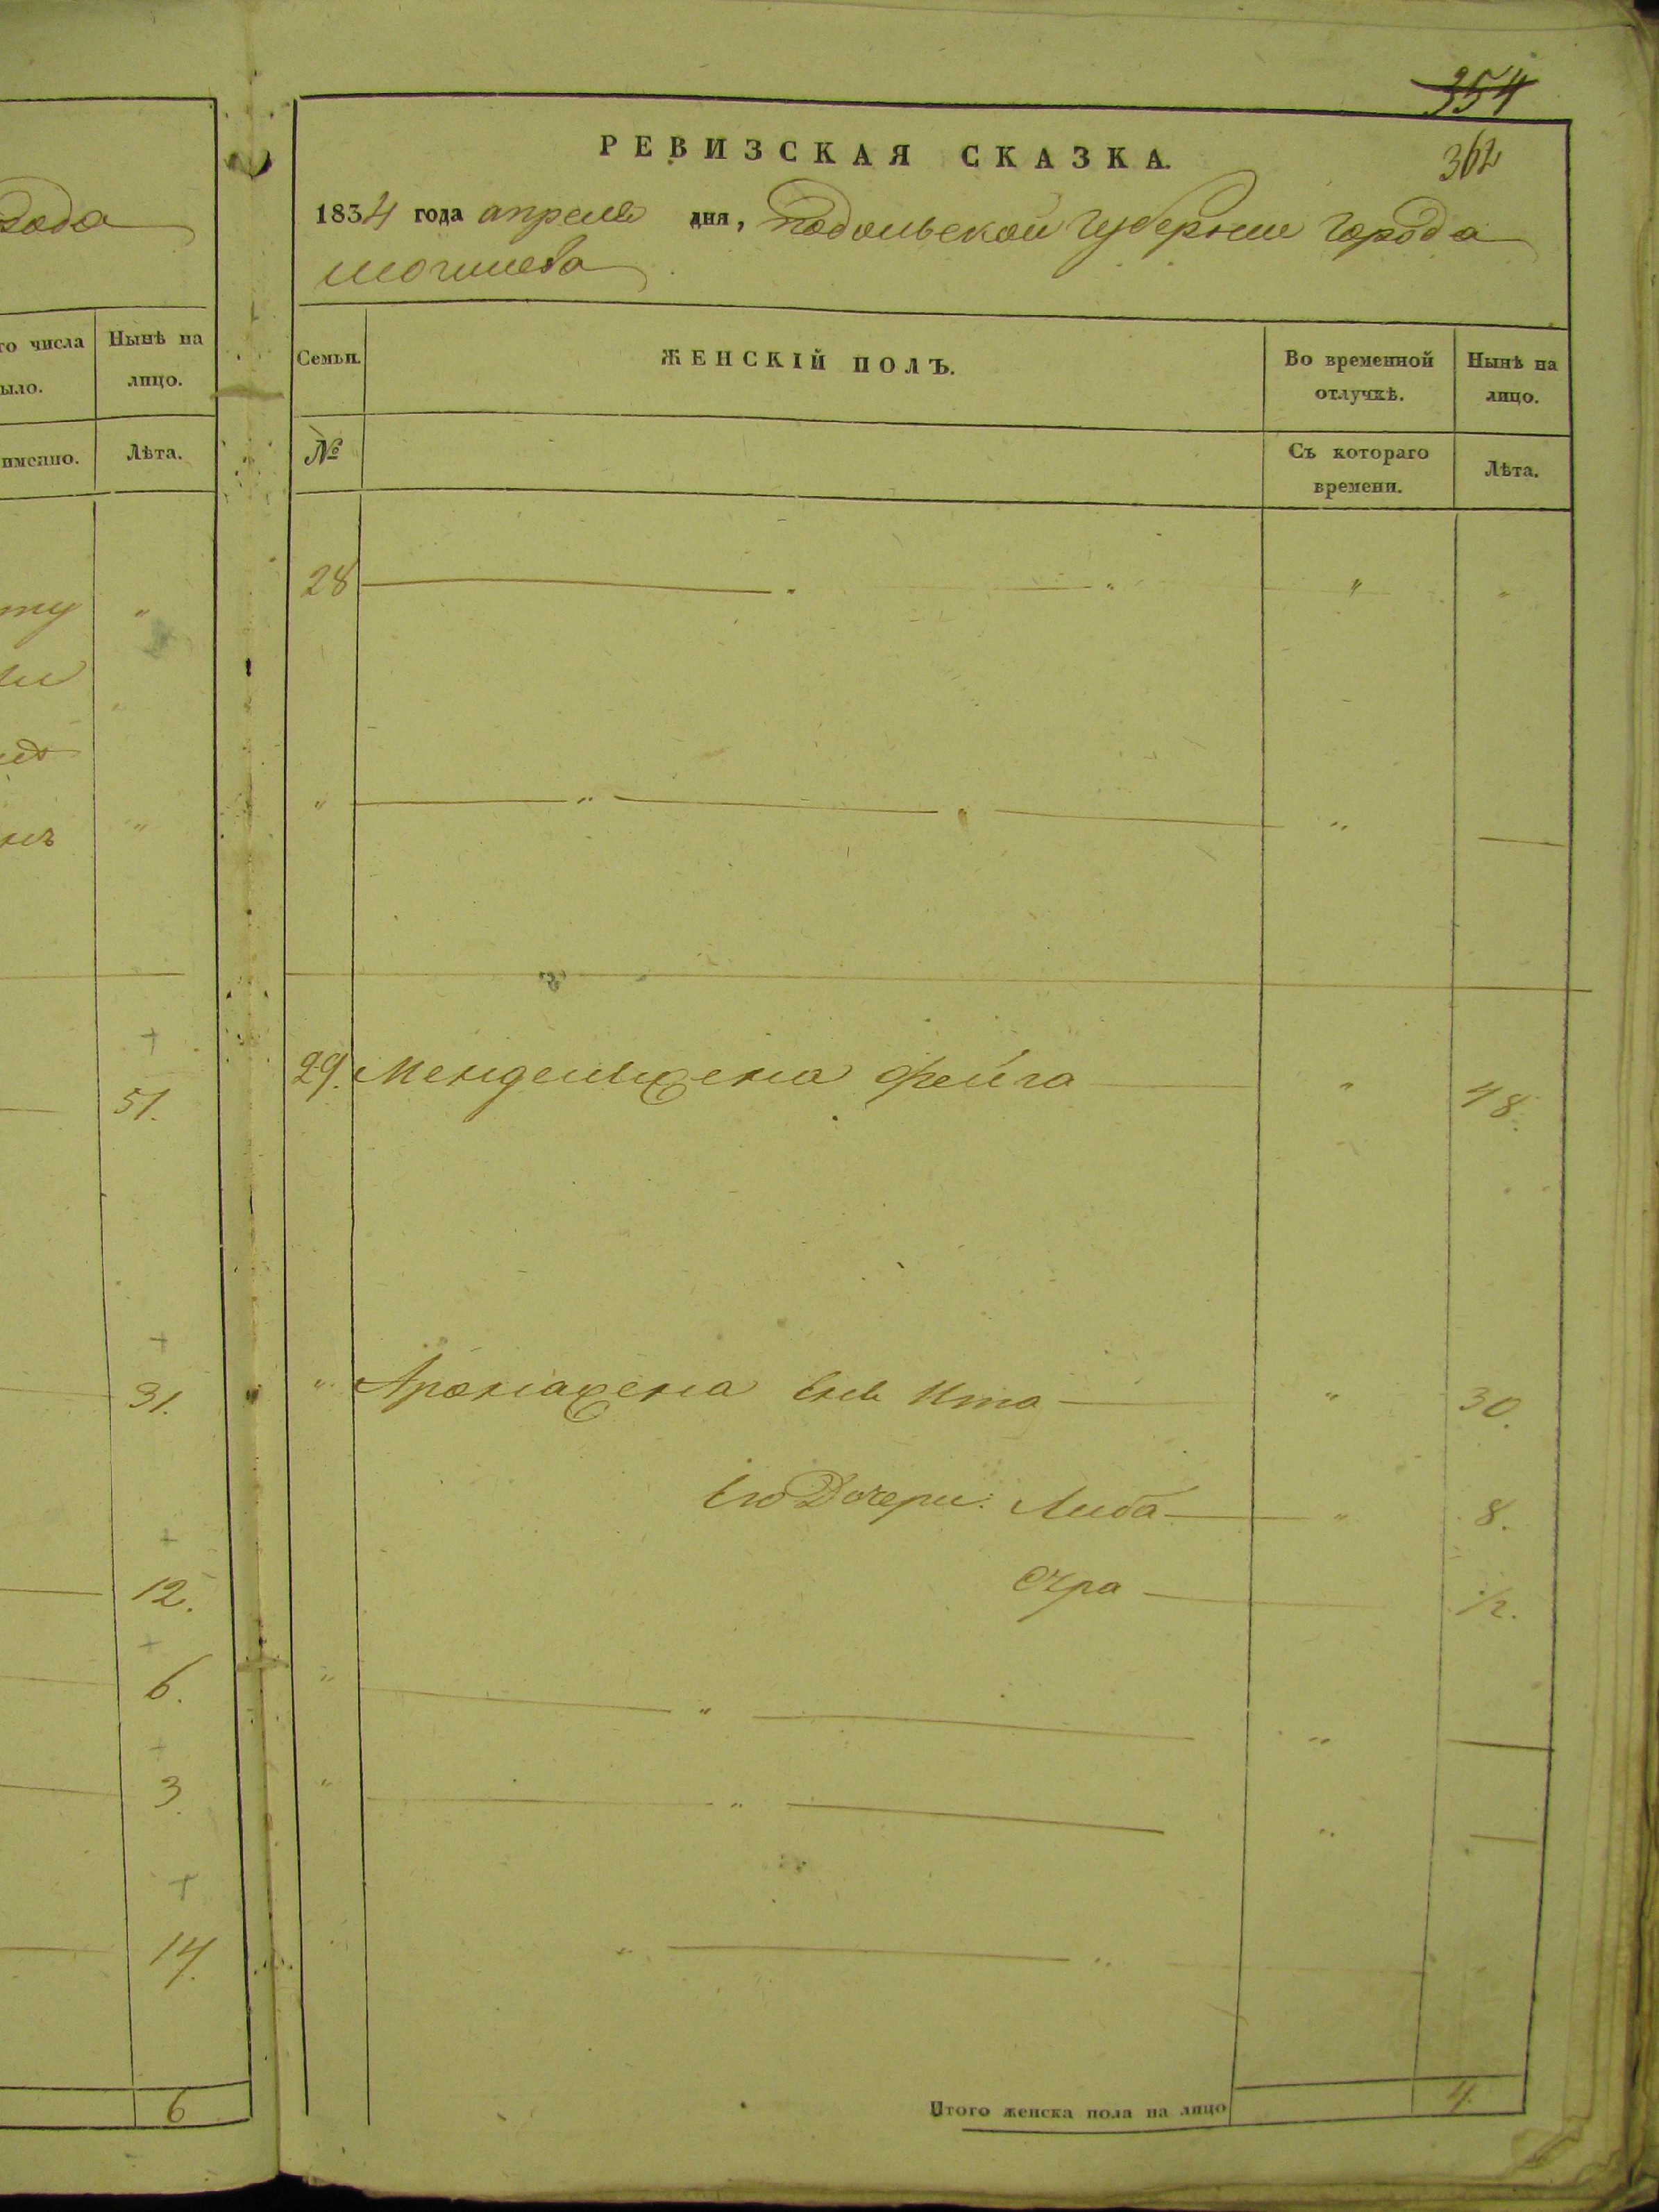 354
362
РЕВИЗСКАЯ СКАЗКА.
1834 года апреля дня, Подольской Губернии Города
Могилева
года
го числа
ыло.
Нынѣ на
лицо.
именно.
Лѣта.
Семьи.
ЖЕНСКІЙ ПОЛЪ.
Во временной
отлучкѣ.
Нынѣ на
лицо.
№
Съ котораго
времени.
Лѣта.
28 " " " "
" " " "
29. Менделя жена Фейга " 48.
51.
" Арона жена Ита " 30.
31.
Его Дочери: Либа " 8.
Сура 1/2.
12.
6.
3.
14.
Итого женска пола на лицо 4.
6